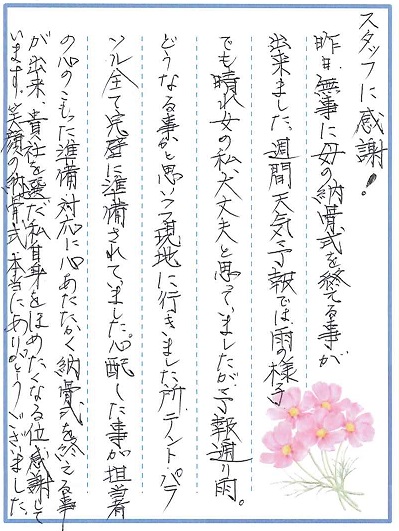 スタッフに感謝!
昨日、無事に母の納骨式を終える事が
出来ました。週間天気予報では雨の様子
でも晴れ女の私大丈夫と思っていましたが予報通り雨。
どうなる事かと思いつつ現地に行きました所、テント・パラ
ソル全て完璧に準備されていました。心配した事が担当者
の心のこもった準備、対応に心あたたかく納骨式を終える事
が出来、貴社を選だ私自身をほめたくなる位感謝して
います。笑顔の納骨式本当にありがとうございました。